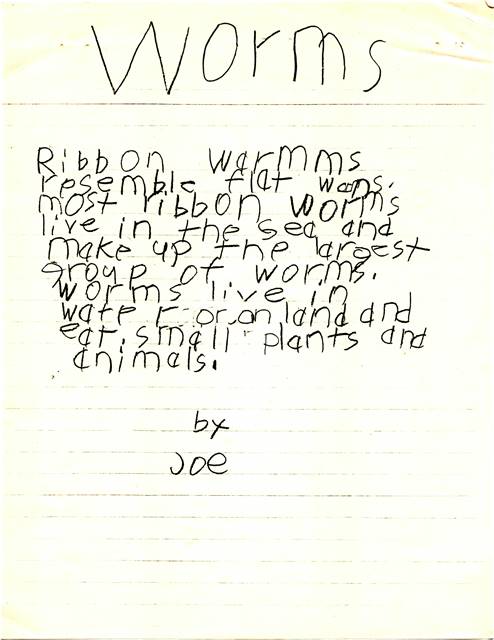 Worms
Ribbon warmms
resemble flat woms.
most ribbon worms
live in the sea and
make up the largest
group of worms.
worms live in
water or on land and
eat small plants and
animals.
by
Joe